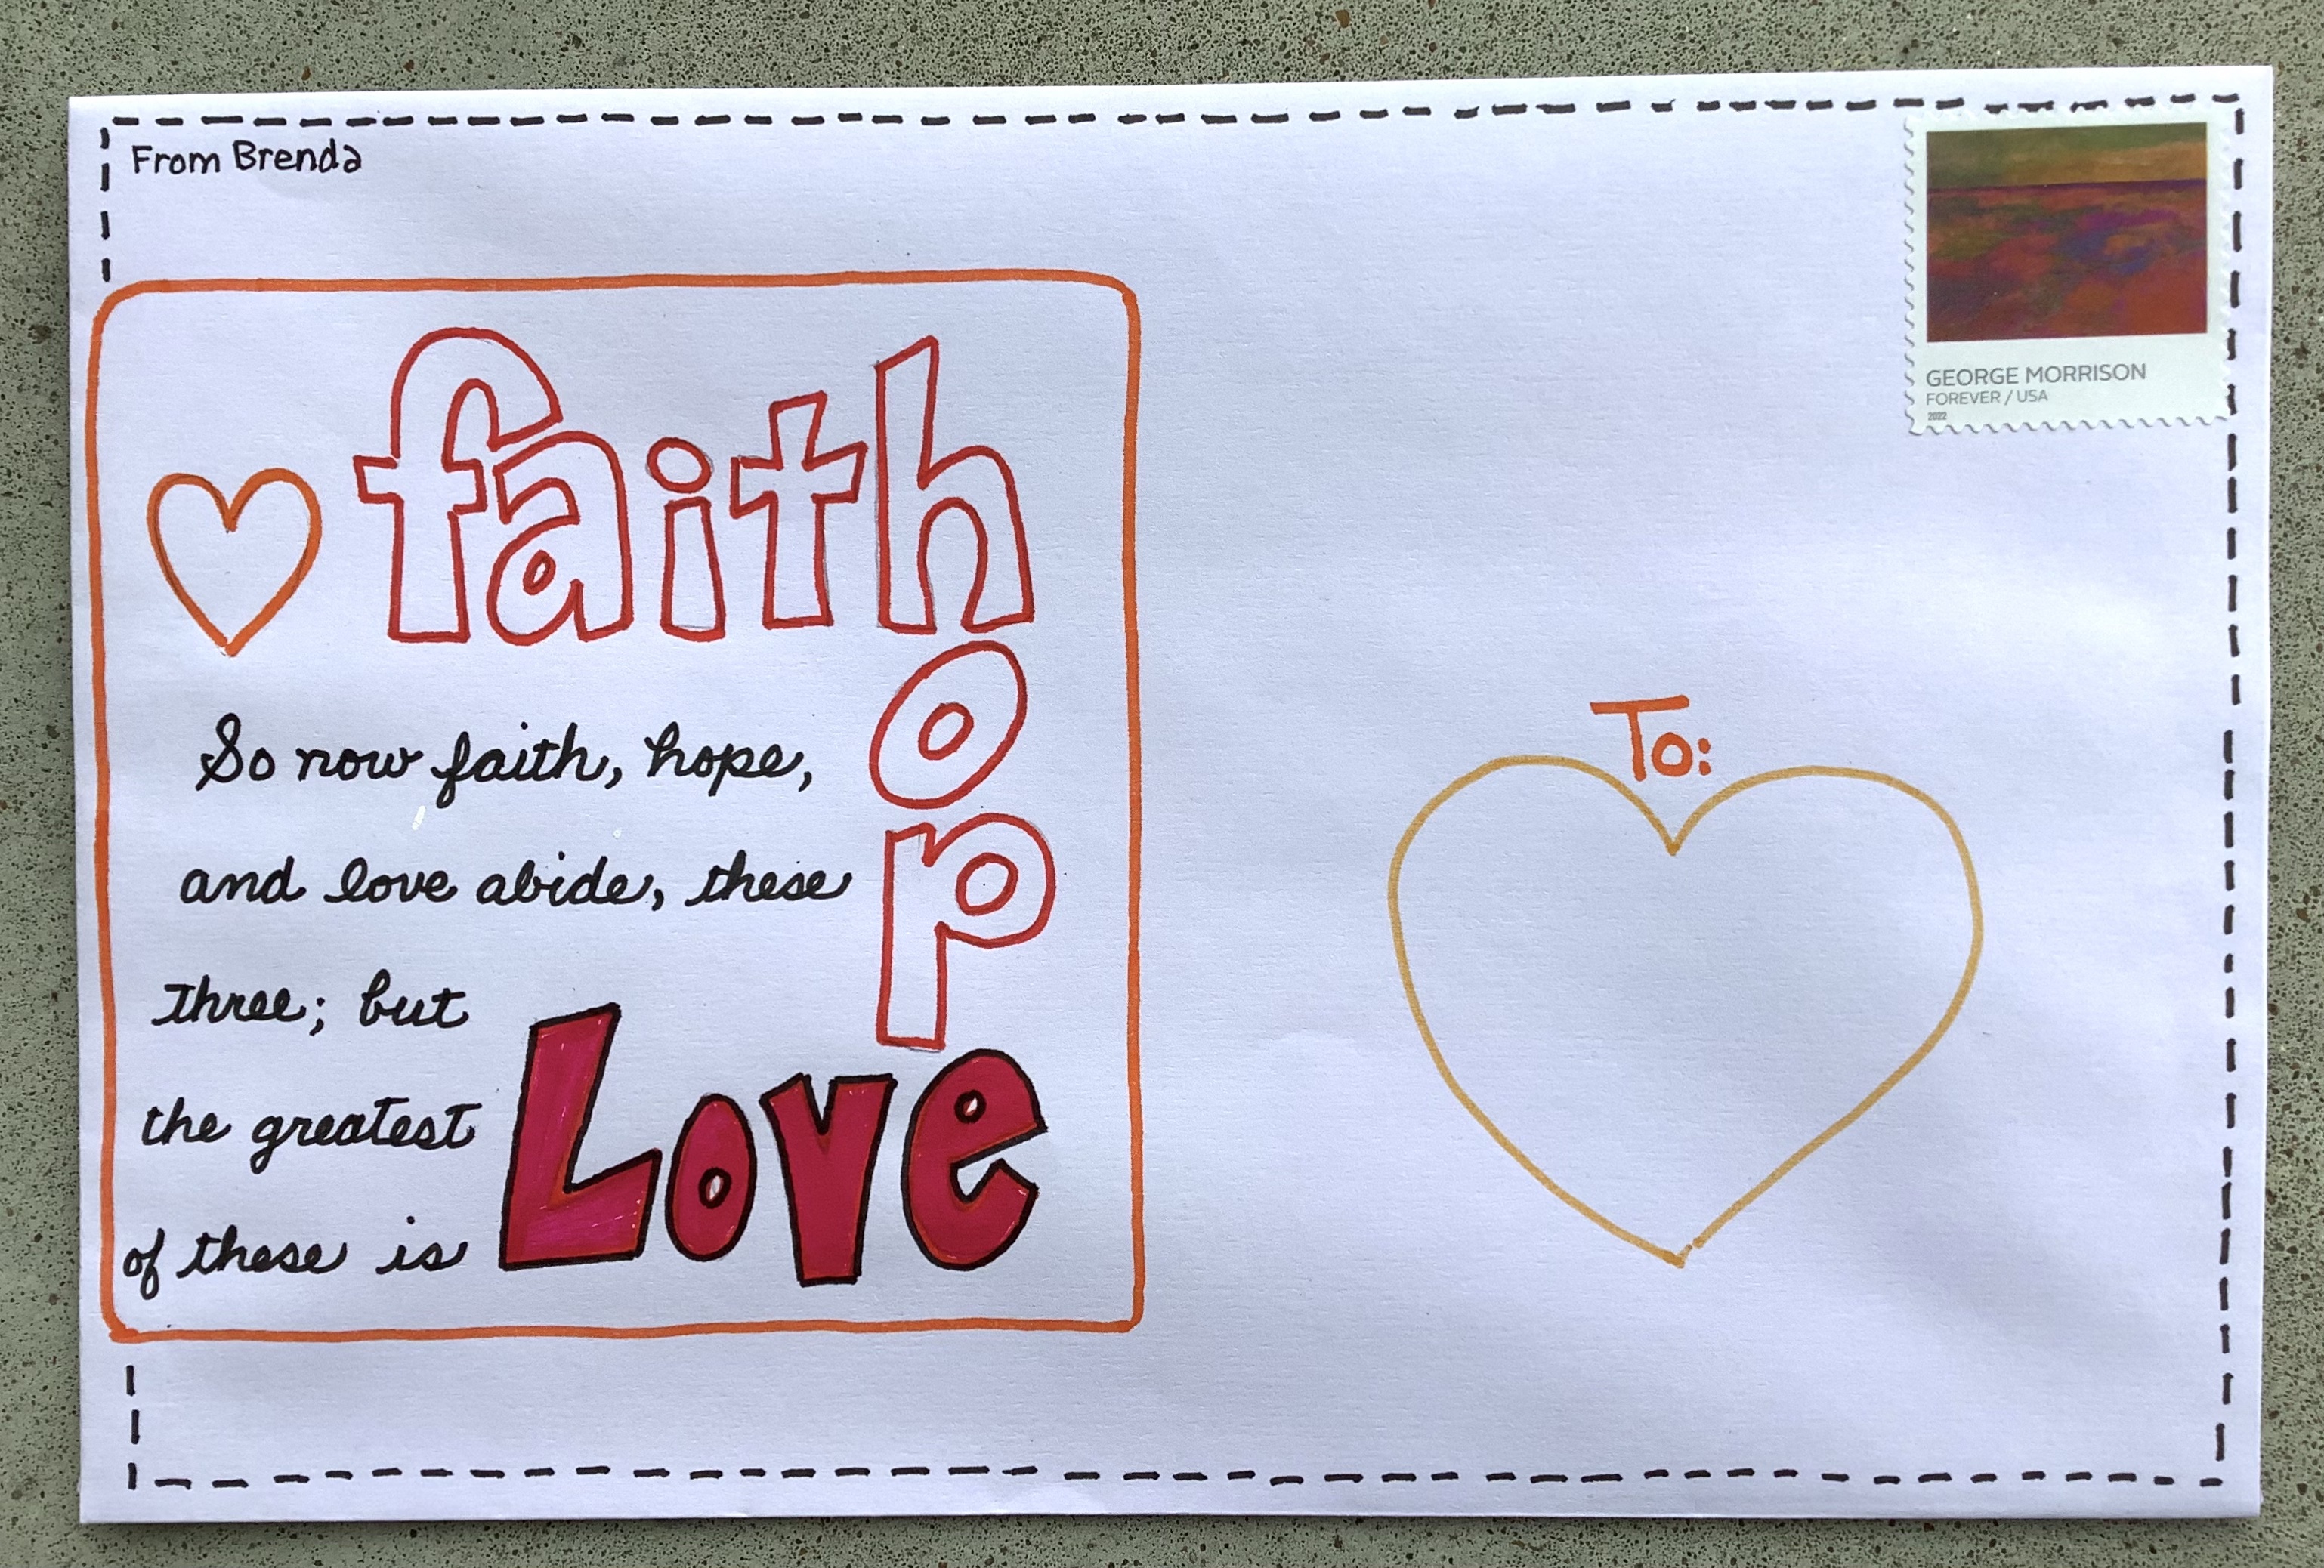 From Brenda
GEORGE MORRISON
FOREVER / USA
2022
faith
hope
So now faith, hope,
and love abide, these
three; but
the greatest
of these is
Love
To: